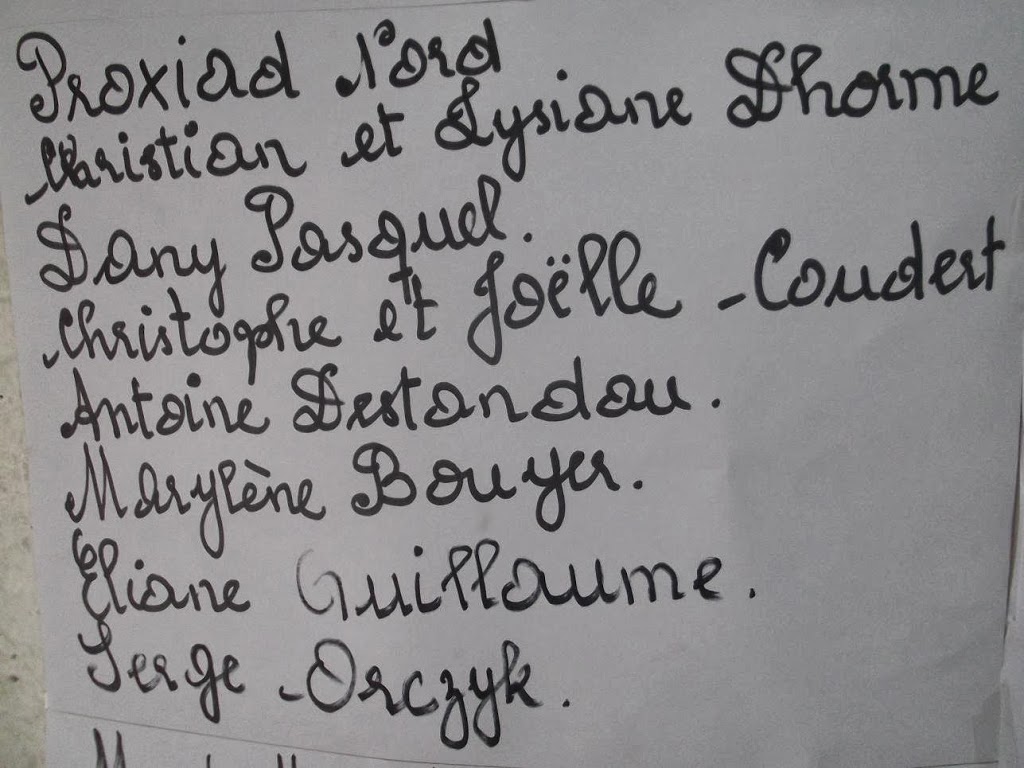 Proxiad Nord
Christian et Lysiane Dhorme
Dany Pasquel.
Christophe et Joëlle Coudert
Antoine Destandau.
Marylène Bouyer.
Eliane Guillaume.
Serge Orczyk.